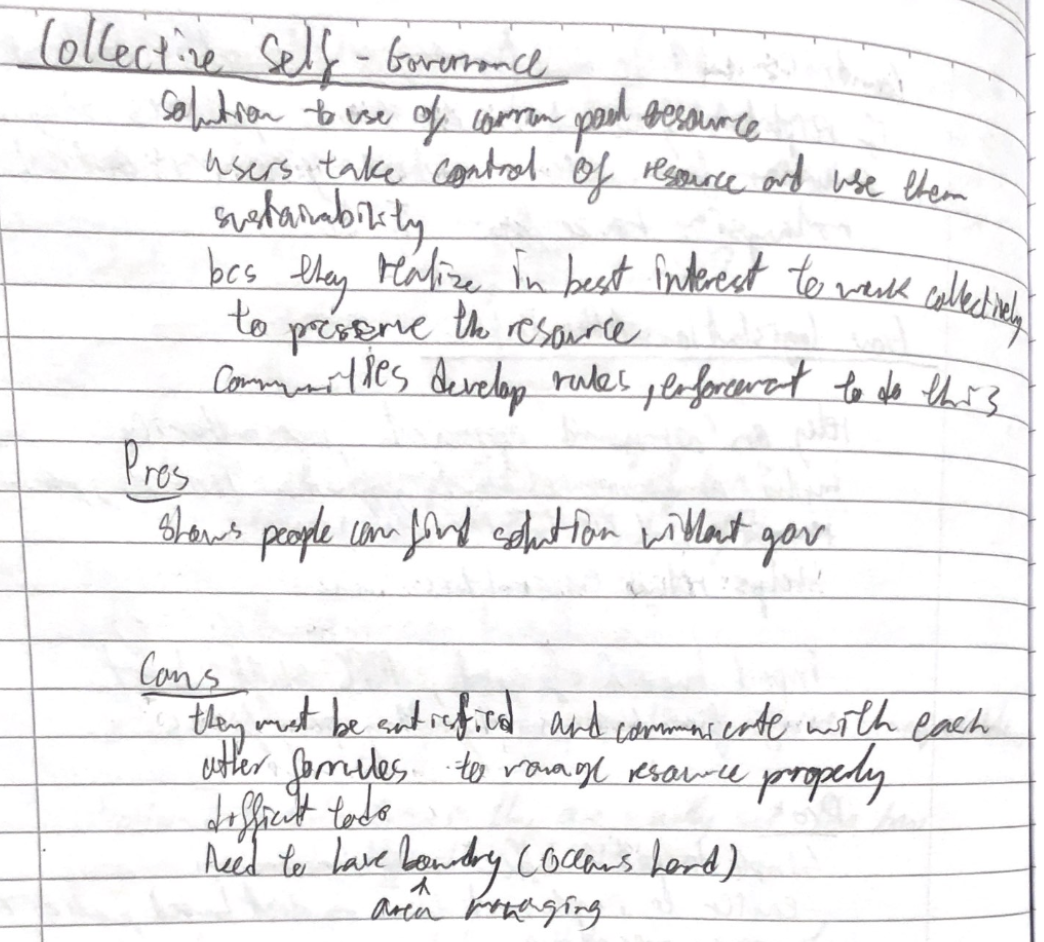 Collective Self-Governance
Solution to use of common pool resource
users take control of resource and use them
sustainability
bcs they realize in best interest to work collectively
to preserve the resource
Communities develop rules, enforcement to do this
Pros
shows people can find solution without gov
Cons
they must be satisfied and communicate with each
other for rules to manage resource properly
difficult to do
Need to have boundry (oceans hard)
^
area managing